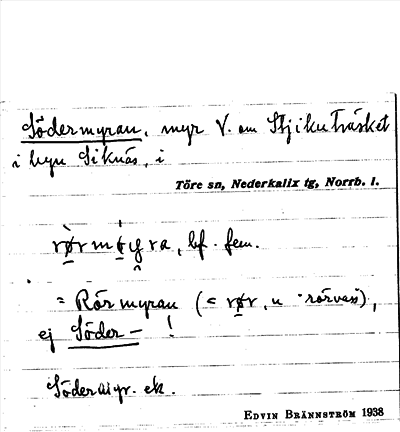 Södermyran, myr V. om Stjikuträsket
i byn Siknäs, i
Töre sn, Nederkalix tg, Norrb. l.
bf. fem.
= Rörmyran (= rør, n "rörvass),
ej Söder- !
Södermyr. ek.
EDVIN BRÄNNSTRÖM 1938